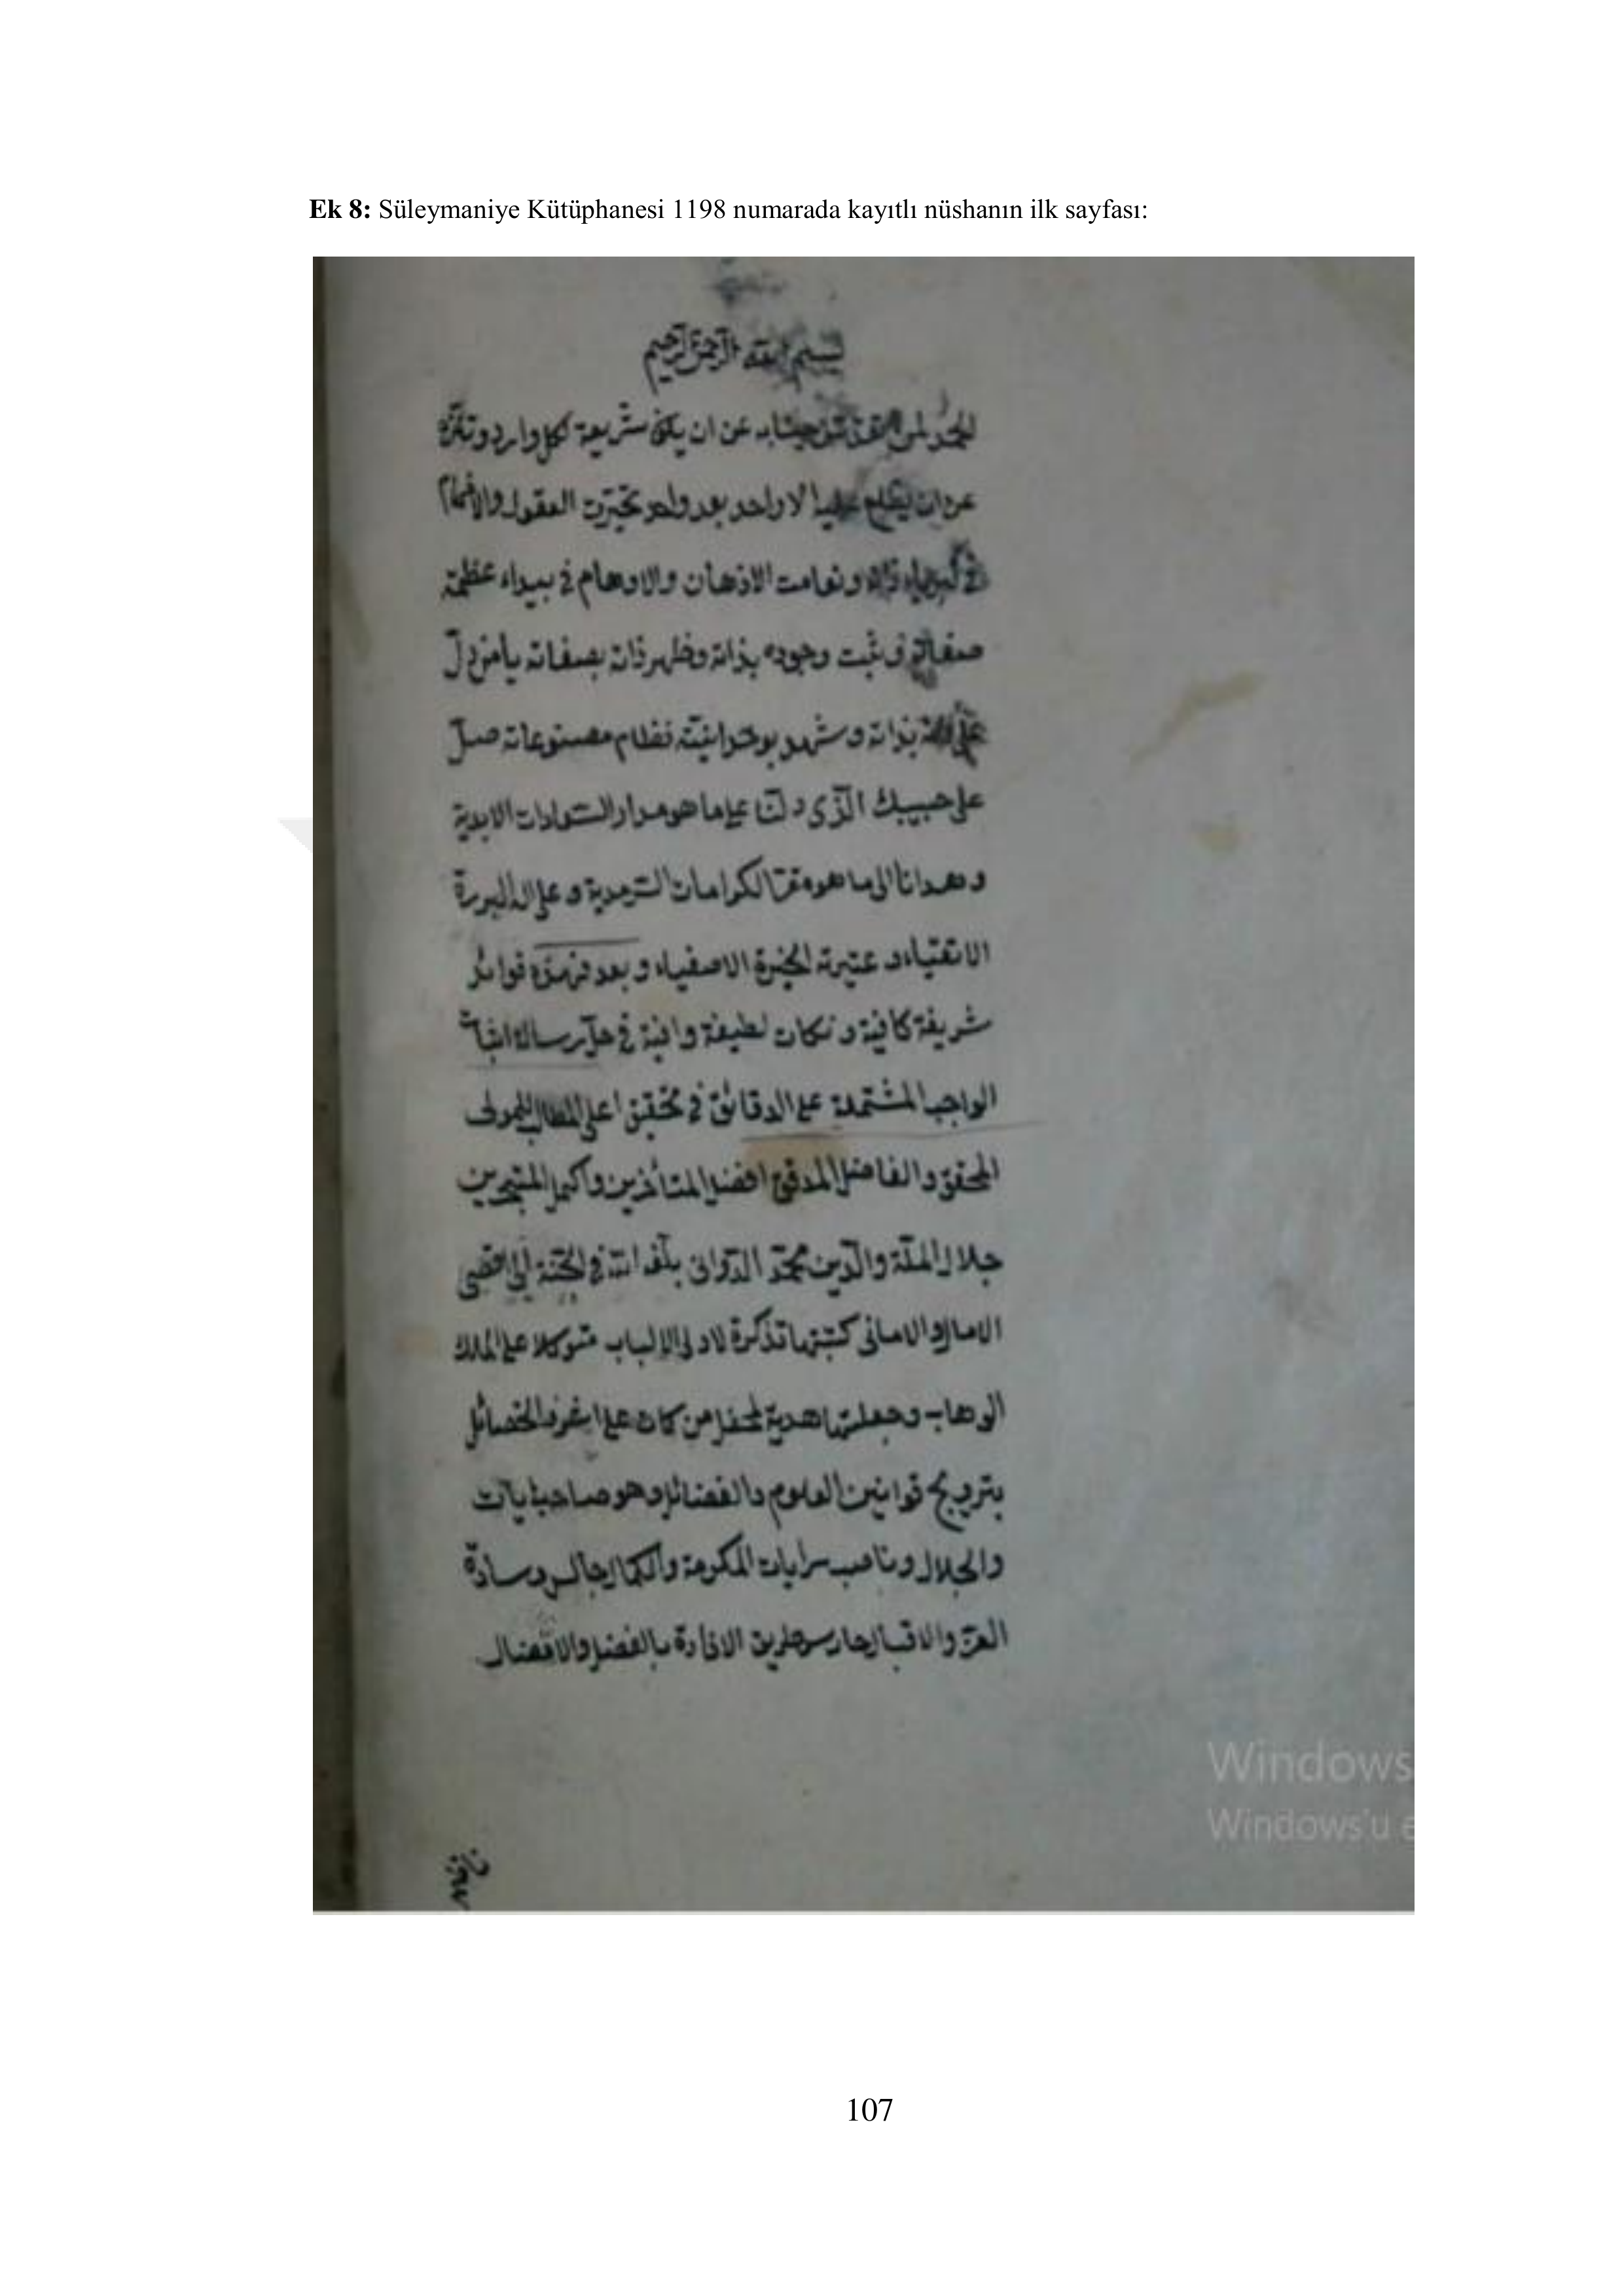 Ek 8: Süleymaniye Kütüphanesi 1198 numarada kayıtlı nüshanın ilk sayfası:
بسم الله الرحمن الرحيم
عن ان يكون شريعة لكل وارد وتنزه
عن ان يطلع عليه الا واحد بعد واحد تحيرت العقول والافهام
في كبرياء ذاته وتعامت الاذهان والاوهام في بيداء عظمة
صفاته ثبت وجوده بذاته وظهر ذاته بصفاته يا من دل
على ذاته بذاته و شهد بوحدانيته نظام مصنوعاته صل
على حبيبك الذى دلنا على ما هو مدار السعادات الابدية
وهدانا الى ما هو مقر الكرامات السرمدية و على اله البررة
الاتقياء و عترته الخيرة الاصفياء و بعد فهذه فوائد
شريفة كافية و نكات لطيفة وافية في حل رسالة اثبات
الواجب المشتملة على الدقائق في تحقيق اعلى المطالب للمولى
المحقق والفاضل المدقق افضل المتأخرين واكمل المتبحرين
جلال الملة والدين محمد الدوانى بلغه الله في الجنة الى اقصى
الامال والامانى كتبتها تذكرة لاولى الالباب متوكلا على الملك
الوهاب وجعلتها هدية لمحفل من كان على اشرف الخصائل
بترويج قوانين العلوم والفضائل وهو صاحب ايات
والجلال وناصب رايات المكرمة والكمال جالس وسادة
العز والاقبال حارس طريق الافادة بالفضل والافضال
Windows
Windows'u e
107